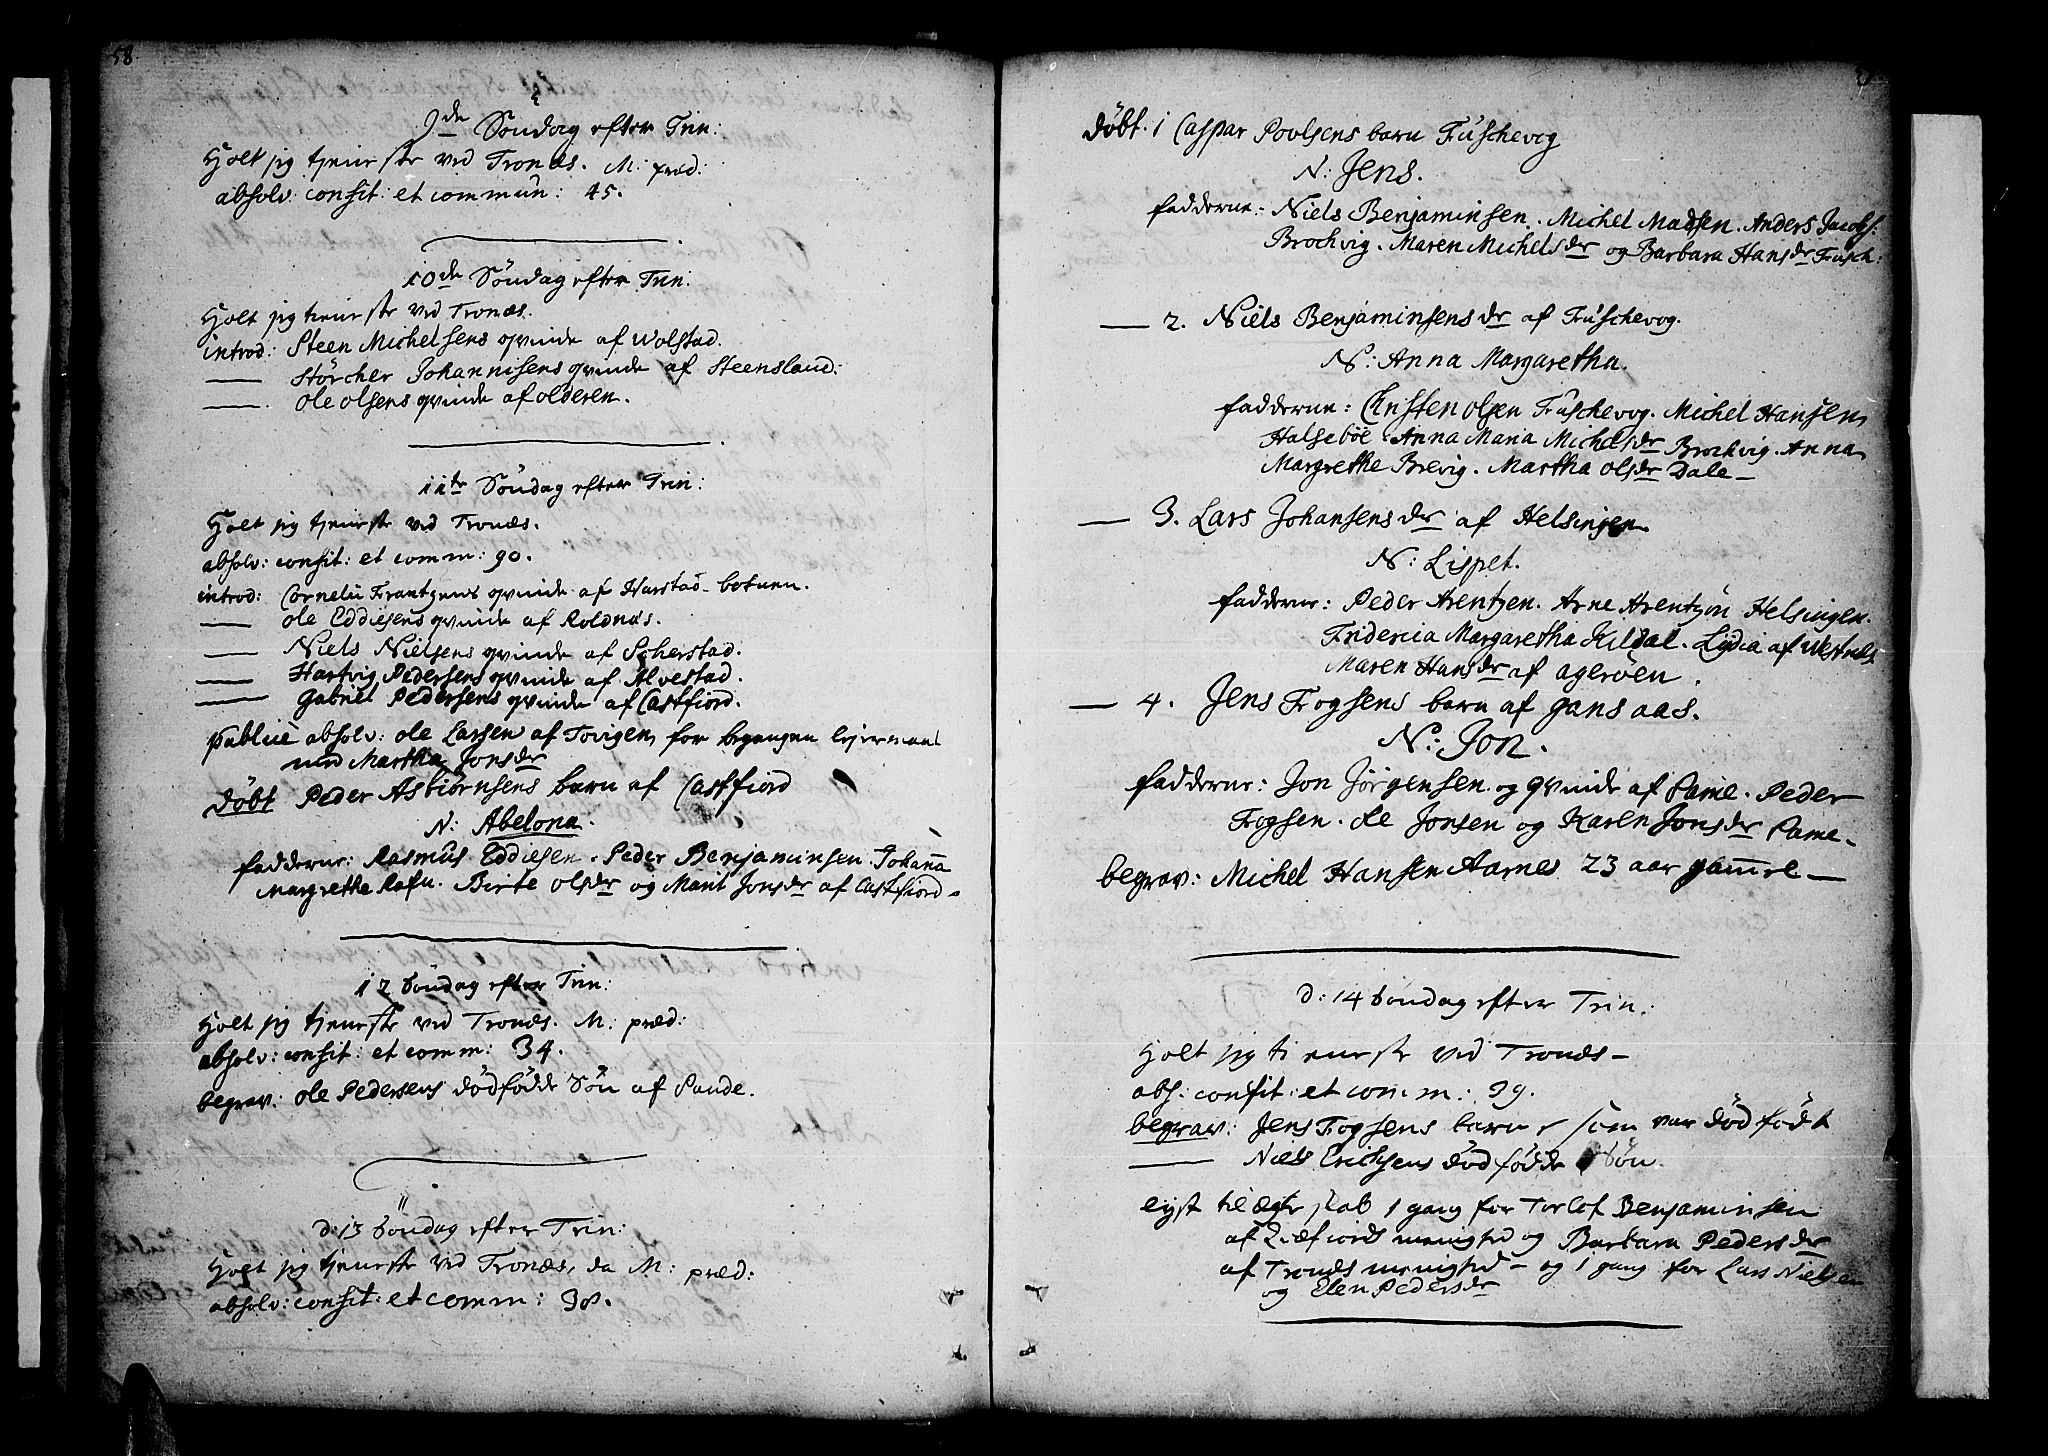 58
9de Söndag efter Trin:
Holt jeg tjeneste ved Tronæs. M: præd:
absolv: confit: et commun: 45.
10de Söndag efter Trin:
Holt jeg tieneste ved Tronæs.
introd: Steen Michelsens qvinde af Wolstad.
—— Störcher Johannisens qvinde af Steensland:
—— . Ole olsens qvinde af olderen.
11te Söndag efter Trin:
Holt jeg tjeneste ved Tronæs.
absolv: confit: et comm: 90.
introd: Cornelii Frantzens qvinde af Harstad-botnen.
—— Ole Eddiesens qvinde af Roldnæs.
—— Niels Nielsens qvinde af Scherstad.
—— Hartvig Pedersens qvinde af Alvestad.
—— Gabriel Pedersens qvinde af Castfiord.
publicè absolv: Ole Larsen af Tovigen for begangen leiermaal
med Martha Jonsdr
döbt Peder Asbiörnsens barn af Castfiord
N: Abelona.
fadderne: Rasmus Eddiesen. Peder Benjaminsen. Johanna
Margrethe Rafn. Birte olsdr og Marit Jonsdr af Castfiord.
12 Söndag efter Trin:
Holt jeg tjeneste ved Tronæs. M: præd:
absolv: confit: et comm: 34.
begrav: Ole Pedersens dödfödde Sön af Sande.
d: 13 Söndag efter Trin:
Holt jeg tjeneste ved Tronæs, da M: præd:
absolv: confit: et comm: 38.
döbt. 1 Caspar Povlsens barn Fuschevog
N: Jens.
fadderne: Niels Benjaminsen. Michel Madsen. Anders Jacobs:
Brochvig. Maren Michelsdr og Barbara Hansdr Fusch:
—— 2. Niels Benjaminsens dr af Fuschevog.
N: Anna Margaretha.
fadderne: Christen olsen Fuschevog. Michel Hansen
Halseböe. Anna Maria Michelsdr Brochvig. Anna
Margrethe Brevig. Martha olsdr Dale —
—— 3. Lars Johansens dr af Helsingen.
N: Lispet.
fadderne: Peder Arentzen. Arne Arentzön Helsingen.
Fridericia Margaretha Kildal. Lydia af
Maren Hansdr af ageröen.
—— 4. Jens Fogsens barn af gansaas.
N: Jon.
fadderne: Jon Jörgensen og qvinde af Same. Peder
Fogsen. Ole Jonsen og Karen Jonsdr Same.
begrav: Michel Hansen Aarnes 23 aar gammel —
d: 14 Söndag efter Trin:
Holt jeg tieneste ved Tronæs —
abs: confit: et comm: 39.
begrav: Jens Fogsens barn, som var död födt
—— Niels Erichsens död födde Sön.
lyst til ægteskab 1 gang for Torlof Benjaminsen
af Qvæfiords menighed og Barbara Pedersdr
af Tronæs menighed — og 1 gang for Lars Nielsen
og Elen Pedersdr